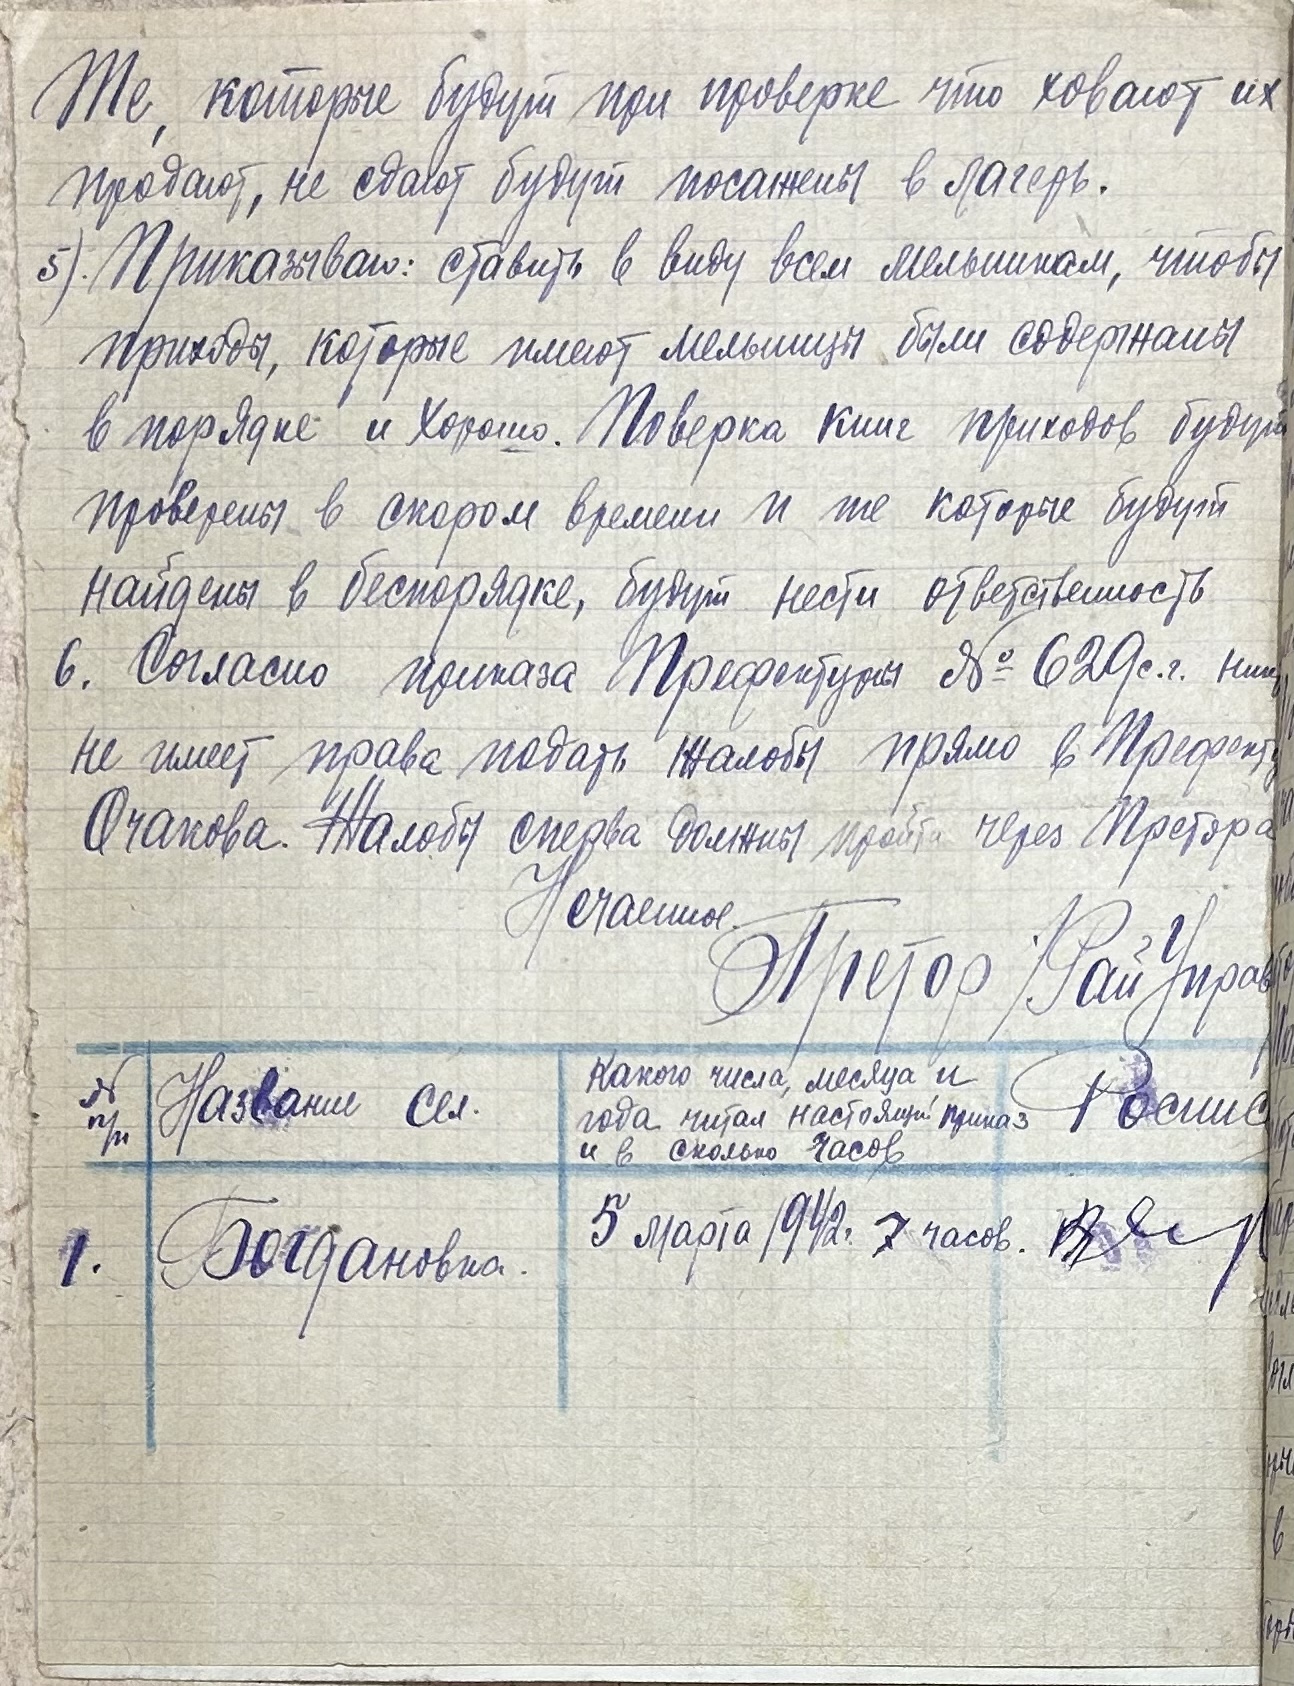 Те, которые будут при проверке что ховают их
продают, не сдают будут посажены в лагерь.
5). Приказываю: ставить в виду всем мельникам, чтобы
приходы, которые имеют мельницы были содержаны
в порядке и хорошо. Поверка книг приходов будут
проверены в скором времени и те которые будут
найдены в беспорядке, будут нести ответственность
6. Согласно приказа Префектуры № 629 с.г.
не имеет права подать жалобы прямо в Префекту
Очакова. Жалобы сперва должны пройти через Претора
Претор РайУправ
№ п/п Название сел. Какого числа, месяца и года читал настоящий приказ и в сколько часов Роспис
1. Богдановка. 5 марта 1942г. 7 часов.